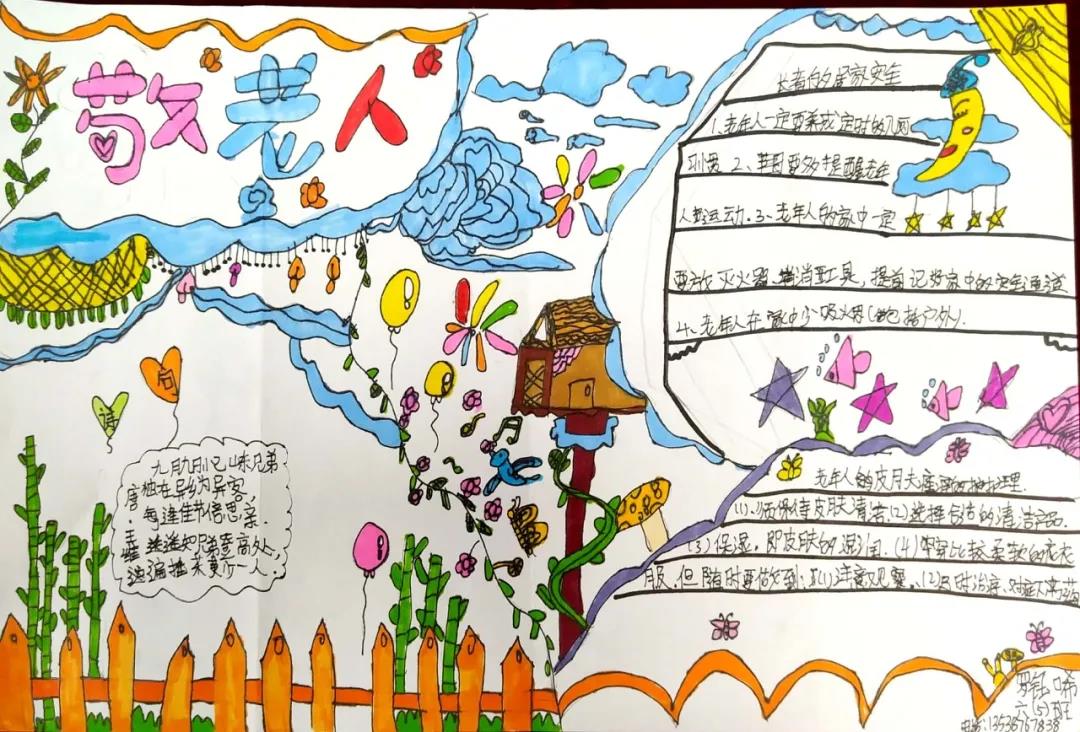 敬老人
长者的居家安全
1.老年人一定要养成定时的
习惯 2、要多提醒老年
人 运动.3、老年人的家中一定
要放灭火器、 消 工具,提前记好家中的安全通道
4、老年人在家中少吸烟(包括户外).
诗句
九月九日忆山东兄弟
唐.王维
独在异乡为异客,
每逢佳节倍思亲.
遥知兄弟登高处,
遍插茱萸少一人.
老年人的皮肤 护理.
(1). 保持皮肤清洁(2)选择合适的清洁产品.
(3)保湿,即皮肤的 (4)穿比较柔软的衣
服,但随时要做到:(1)注意观察、(2)及时治疗、对症下
六(5)班
电话:13536767838